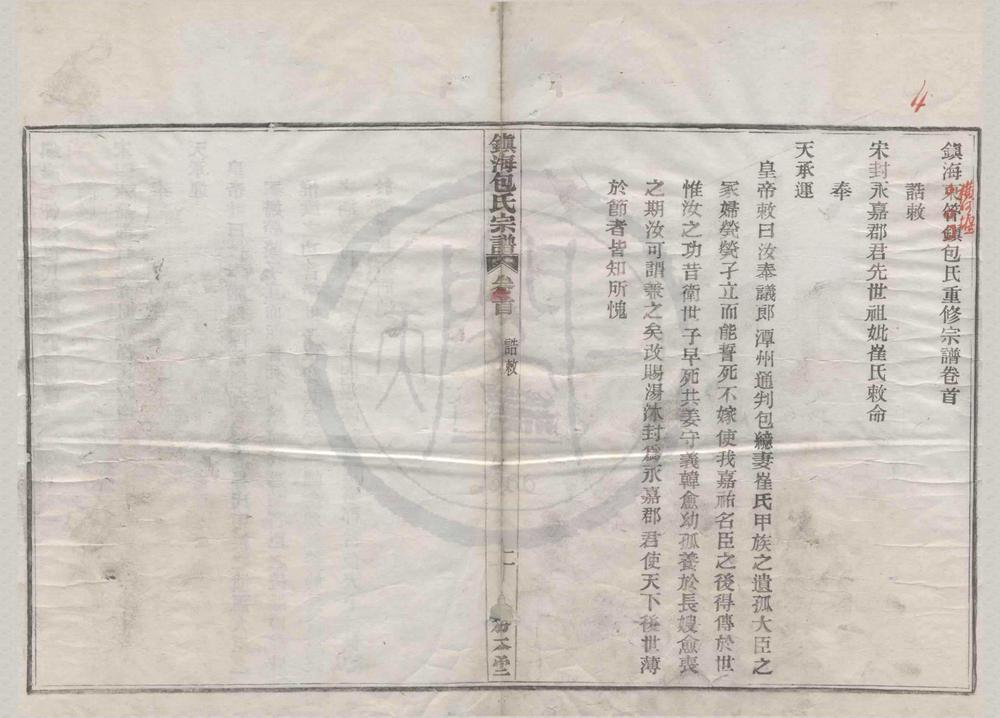 4
鎮海東管鎮包氏重修宗譜卷首
橫河堰
誥敕
宋封永嘉郡君先世祖妣崔氏敕命
奉
天承運
皇帝敕曰汝奉議郎潭州通判包繶妻崔氏甲族之遺孤大臣之
冢婦煢煢孑立而能誓死不嫁使我嘉祐名臣之後得傳於世
惟汝之功昔衛世子早死共姜守義韓愈幼孤養於長嫂愈喪
之期汝可謂兼之矣改賜湯沐封爲永嘉郡君使天下後世薄
於節者皆知所愧
鎮海包氏宗譜
卷首
誥敕
二